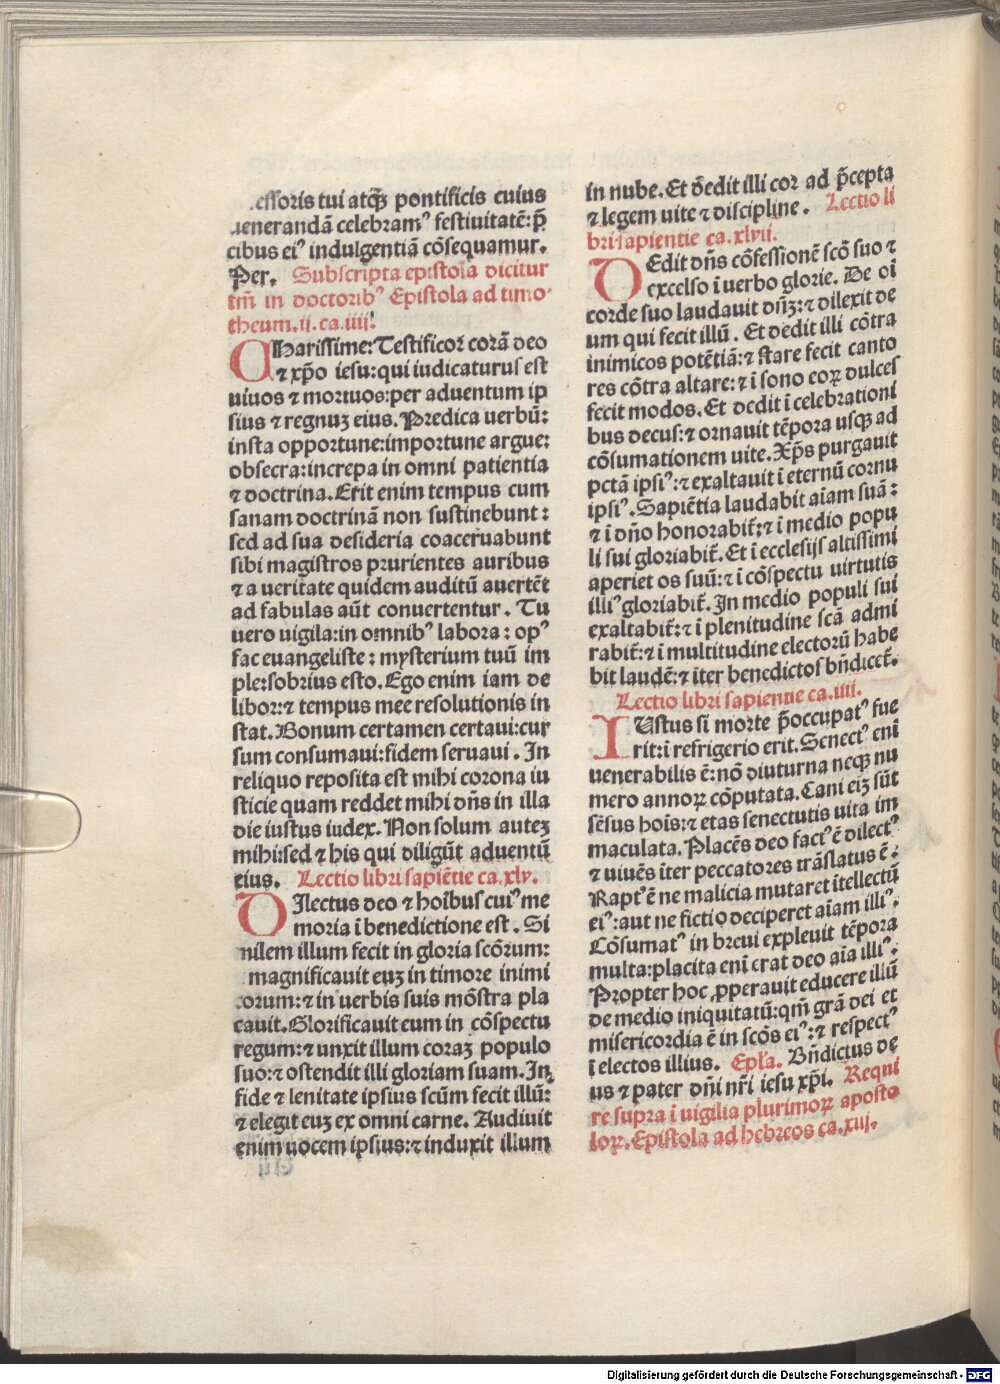 .essoris tui atqꝫ pontificis cuius
uenerandã celebramꝰ festiuitatē: p̄
cibus eiꝰ indulgentiã cõsequamur.
Per. Subscripta epistola dicitur
tm̃ in doctoribꝰ Epistola ad timo
theum. ii. ca. iiij.
CHarissime: Testificor corã deo
⁊ xp̃o iesu: qui iudicaturus est
uiuos ⁊ mortuos: per aduentum ip
sius ⁊ regnuꝫ eius. Predica uerbũ:
insta opportune: importune argue:
obsecra: increpa in omni patientia
⁊ doctrina. Erit enim tempus cum
sanam doctrinã non sustinebunt:
sed ad sua desideria coaceruabunt
sibi magistros prurientes auribus
⁊ a ueritate quidem auditũ auertēt
ad fabulas aũt conuertentur. Tu
uero uigila: in omnibꝰ labora: opꝰ
fac euangeliste: mysterium tuũ im
ple: sobrius esto. Ego enim iam de
libor: ⁊ tempus mee resolutionis in
stat. Bonum certamen certaui: cur
sum consumaui: fidem seruaui. In
reliquo reposita est mihi corona iu
sticie quam reddet mihi dñs in illa
die iustus iudex. Non solum auteꝫ
mihi: sed ⁊ his qui diligũt aduentũ
eius. Lectio libri sapiētie ca. xlv.
DIlectus deo ⁊ hoibus cuiꝰ me
moria ĩ benedictione est. Si
milem illum fecit in gloria scõrum:
magnificauit euꝫ in timore inimi
corum: ⁊ in uerbis suis mõstra pla
cauit. Glorificauit eum in cõspectu
regum: ⁊ unxit illum coraꝫ populo
suo: ⁊ ostendit illi gloriam suam. In
fide ⁊ lenitate ipsius scũm fecit illũ:
⁊ elegit euꝫ ex omni carne. Audiuit
enim uocem ipsius: ⁊ induxit illum
in nube. Et dedit illi cor ad p̄cepta
⁊ legem uite ⁊ discipline. Lectio li
bri sapientie ca. xlvii.
DEdit dñs cõfessionē scõ suo ⁊
excelso ĩ uerbo glorie. De oĩ
corde suo laudauit dñꝫ: ⁊ dilexit de
um qui fecit illũ. Et dedit illi cõtra
inimicos potētiã: ⁊ stare fecit canto
res cõtra altare: ⁊ ĩ sono eoꝝ dulces
fecit modos. Et dedit ĩ celebrationi
bus decus: ⁊ ornauit tēpora usqꝫ ad
cõsumationem uite. Xp̃s purgauit
pctã ipsiꝰ: ⁊ exaltauit ĩ eternũ cornu
ipsiꝰ. Sapiētia laudabit aiam suã:
⁊ ĩ dño honorabit̃: ⁊ ĩ medio popu
li sui gloriabit̃. Et ĩ ecclesijs altissimi
aperiet os suũ: ⁊ ĩ cõspectu uirtutis
illiꝰ gloriabit̃. In medio populi sui
exaltabit̃: ⁊ ĩ plenitudine scã admi
rabit̃: ⁊ ĩ multitudine electorũ habe
bit laudē: ⁊ iter benedictos bñdicet̃.
Lectio libri sapientie ca. iiii.
IUstus si morte p̄occupatꝰ fue
rit: ĩ refrigerio erit. Senectꝰ eni
uenerabilis ē: nõ diuturna neqꝫ nu
mero annoꝝ cõputata. Cani eiꝫ sũt
sēsus hoĩs: ⁊ etas senectutis uita im
maculata. Placēs deo factꝰ ē dilectꝰ
⁊ uiuēs iter peccatores trãslatus ē:
Raptꝰ ē ne malicia mutaret ĩtellectũ
eiꝰ: aut ne fictio deciperet aiam illiꝰ.
Cõsumatꝰ in breui expleuit tēpora
multa: placita enĩ erat deo aĩa illiꝰ.
Propter hoc ꝓperauit educere illũ
de medio iniquitatũ: qm̃ grã dei et
misericordia ē in scõs eiꝰ: ⁊ respectꝰ
ĩ electos illius. Epl̃a. Bñdictus de
us ⁊ pater dñi nr̃i iesu xp̃i. Requi
re supra ĩ uigilia plurimoꝝ aposto
loꝝ. Epistola ad hebreos ca. xiij.
Digitalisierung gefördert durch die Deutsche Forschungsgemeinschaft - DFG